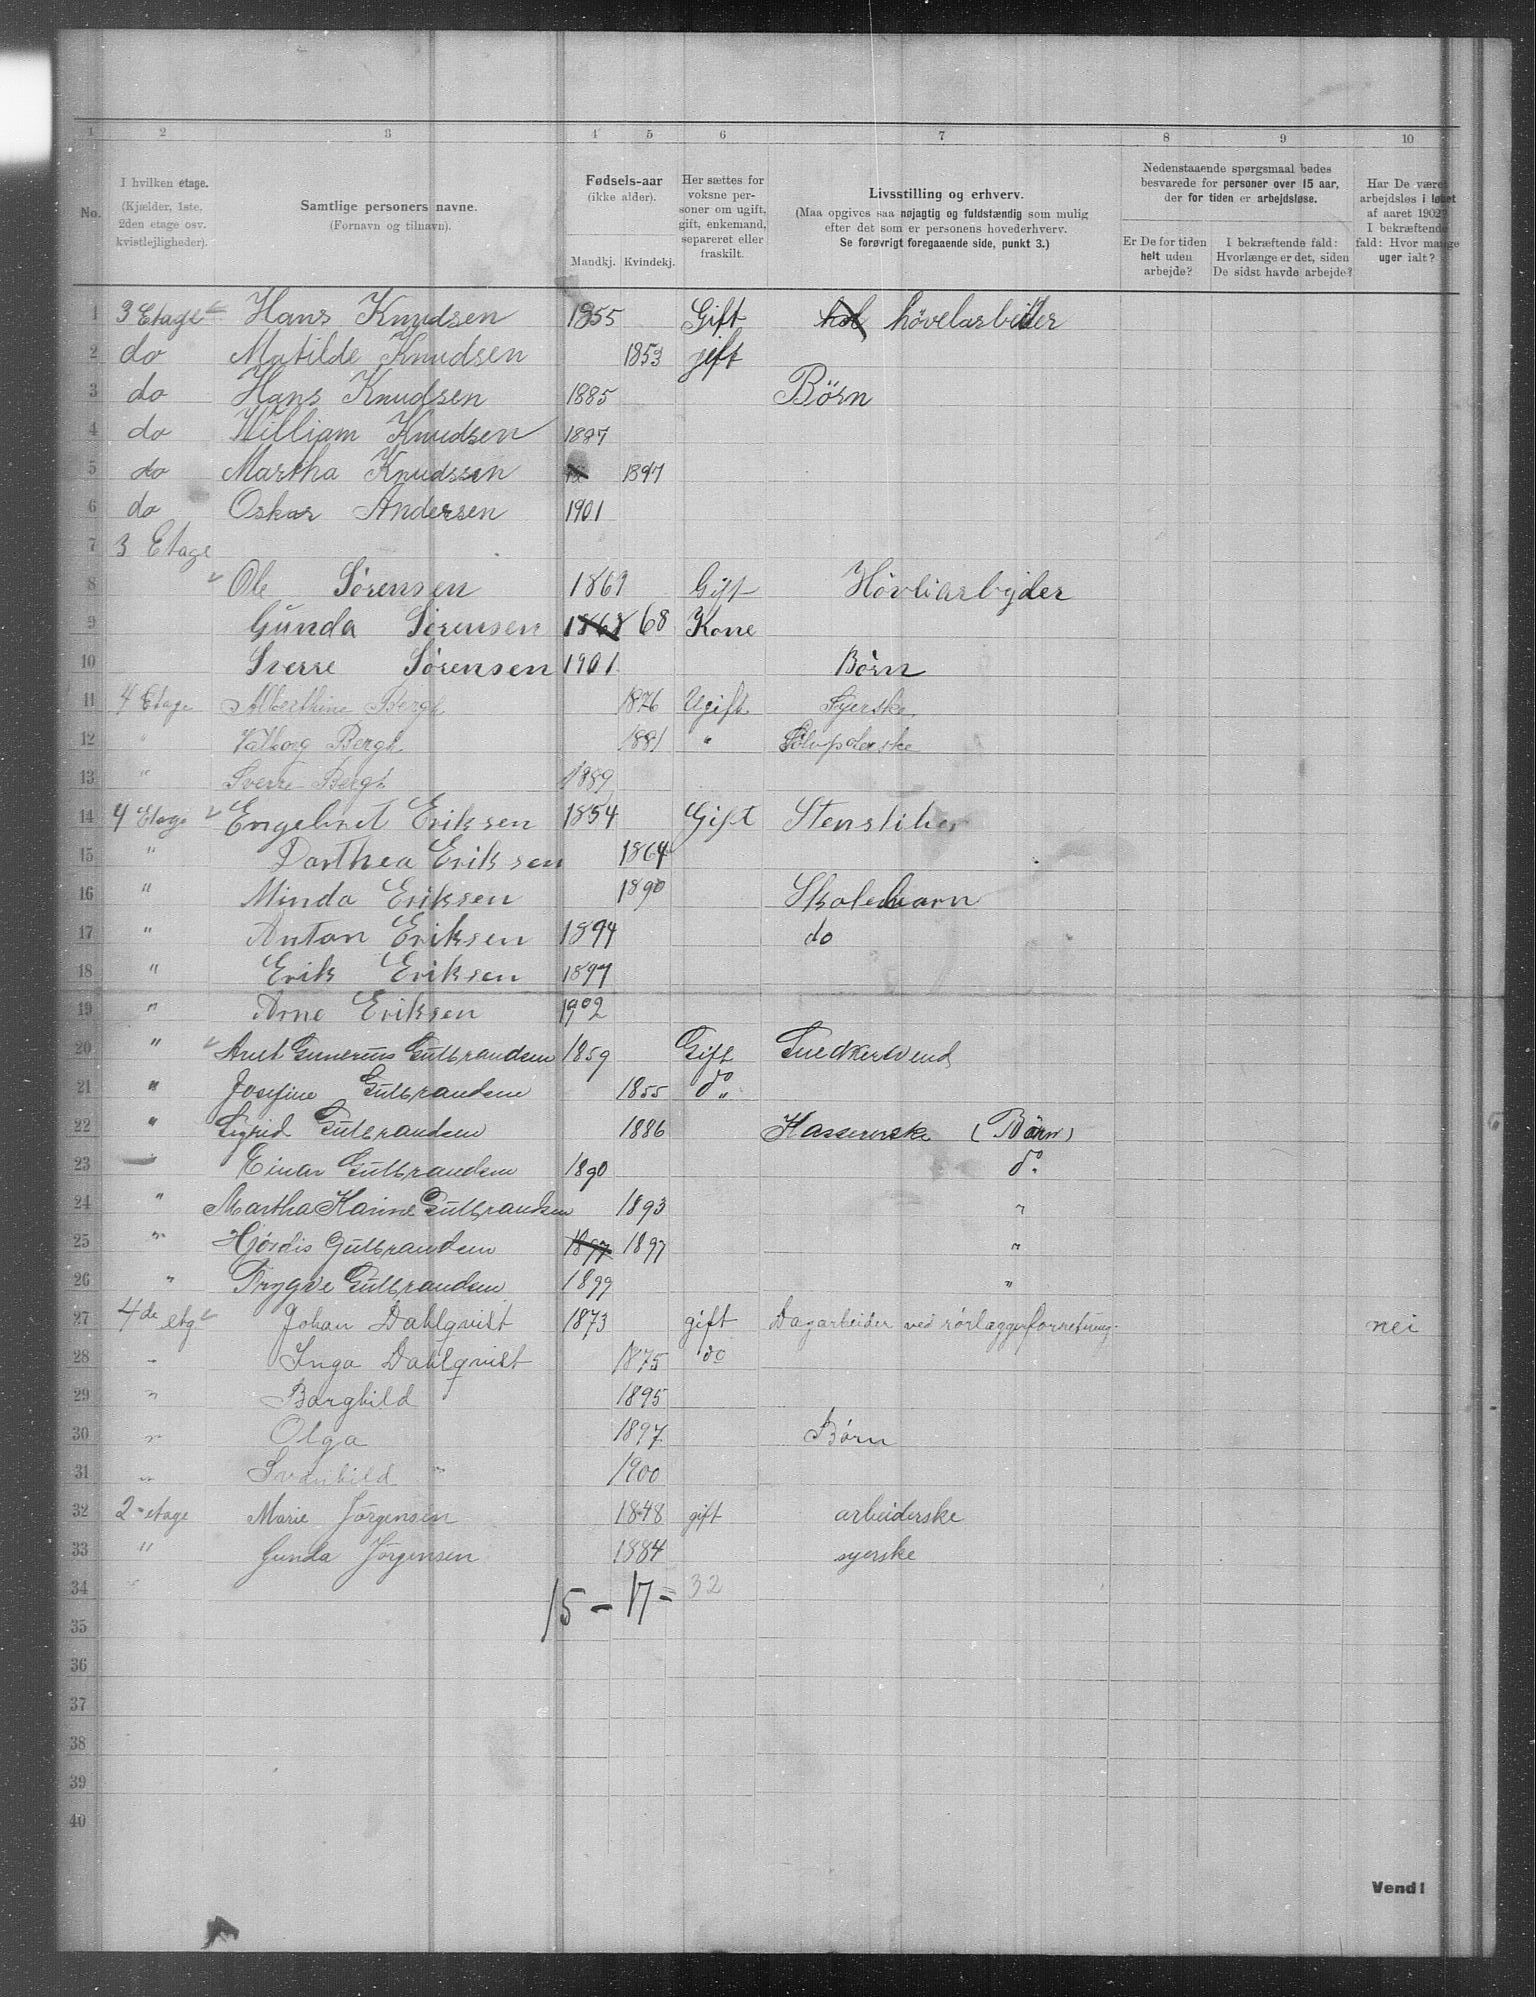 1 2 3 4 5 6 7 8 9 10
No.
I hvilken etage.
(Kjælder, 1ste,
2den etage osv.
kvistlejligheder).
Samtlige personers navne.
(Fornavn og tilnavn).
Fødsels-aar
(ikke alder).
Mandkj. Kvindekj.
Her sættes for
voksne per-
soner om ugift,
gift, enkemand,
separeret eller
fraskilt.
Livsstilling og erhverv.
(Maa opgives saa nøjagtig og fuldstændig som mulig
efter det som er personens hovederhverv.
Se forøvrigt foregaaende side, punkt 3.)
Nedenstaaende spørgsmaal bedes
besvarede for personer over 15 aar,
der for tiden er arbejdsløse.
Er De for tiden
helt uden
arbejde?
I bekræftende fald:
Hvorlænge er det, siden
De sidst havde arbejde?
Har De været
arbejdsløs i løbet
af aaret 1902?
I bekræftende
fald: Hvor mange
uger ialt?
1 3 Etage Hans Knudsen 1855 Gift høvelarbeider
2 do Matilde Knudsen 1853 gift
3 do Hans Knudsen 1885 Børn
4 do William Knudsen 1887
5 do Martha Knudssen 1897
6 do Oskar Andersen 1901
7 3 Etage
8 Ole Sörensen 1861 Gift Hövliarbyder
9 Gunda Sörensen 68 Kone
10 Sverre Sörensen 1901 Børn
11 4 Etage Alberthine Bergh 1876 Ugift Syerske
12 " Valborg Bergh 1881 " Sølvpolerske
13 " Sverre Bergh 1889
14 4 Etage Engebret Eriksen 1854 Gift Stensliber
15 " Dorthea Eriksen 1864
16 " Minda Eriksen 1890 Skolebarn
17 " Anton Eriksen 1894 do
18 " Erik Eriksen 1897
19 " Arne Eriksen 1902
20 " Gunerius Gulbrandsen 1859 Gift Snedkersvend
21 " Josefine Gulbrandsen 1855 do "
22 " Sigrid Gulbrandsen 1886 Kassererske (Børn)
23 Einar Gulbrandsen 1890 do.
24 " Martha Karine Gulbrandsen 1893 "
25 " Hjørdis Gulbrandsen 1897 1897 "
26 " Trygve Gulbrandsen 1899 "
27 4de etg Johan Dahlqvist 1873 gift Dagarbeider ved rørlæggerforretning. nei
28 " Inga Dahlqvist 1875 do
29 " Borghild 1895
30 " Olga 1897 Børn
31 " Svanhild " 1900
32 2 etage Marie Jørgensen 1848 gift arbeiderske
33 " Gunda Jørgensen 1884 syerske
34 " 15 - 17 = 32
35
36
37
38
39
40
Vend!